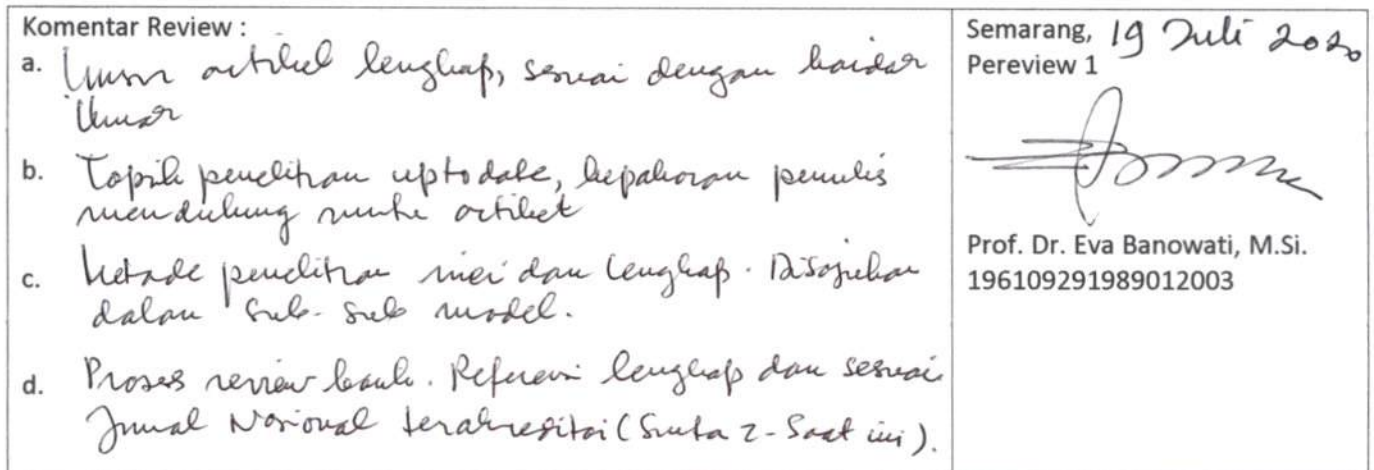 Komentar Review :
a. Unsur artikel lengkap, sesuai dengan kaidah
b. Topik penelitian uptodate, kepakaran penulis
mendukung artikel
c. Metode penelitian rinci dan lengkap. Disajikan
dalam sub-sub model.
d. Proses review baik. Referensi lengkap dan sesuai
Jurnal Nasional terakreditasi (Sinta 2 - Saat ini).
Semarang, 19 Juli 2020
Pereview 1
Prof. Dr. Eva Banowati, M.Si.
196109291989012003